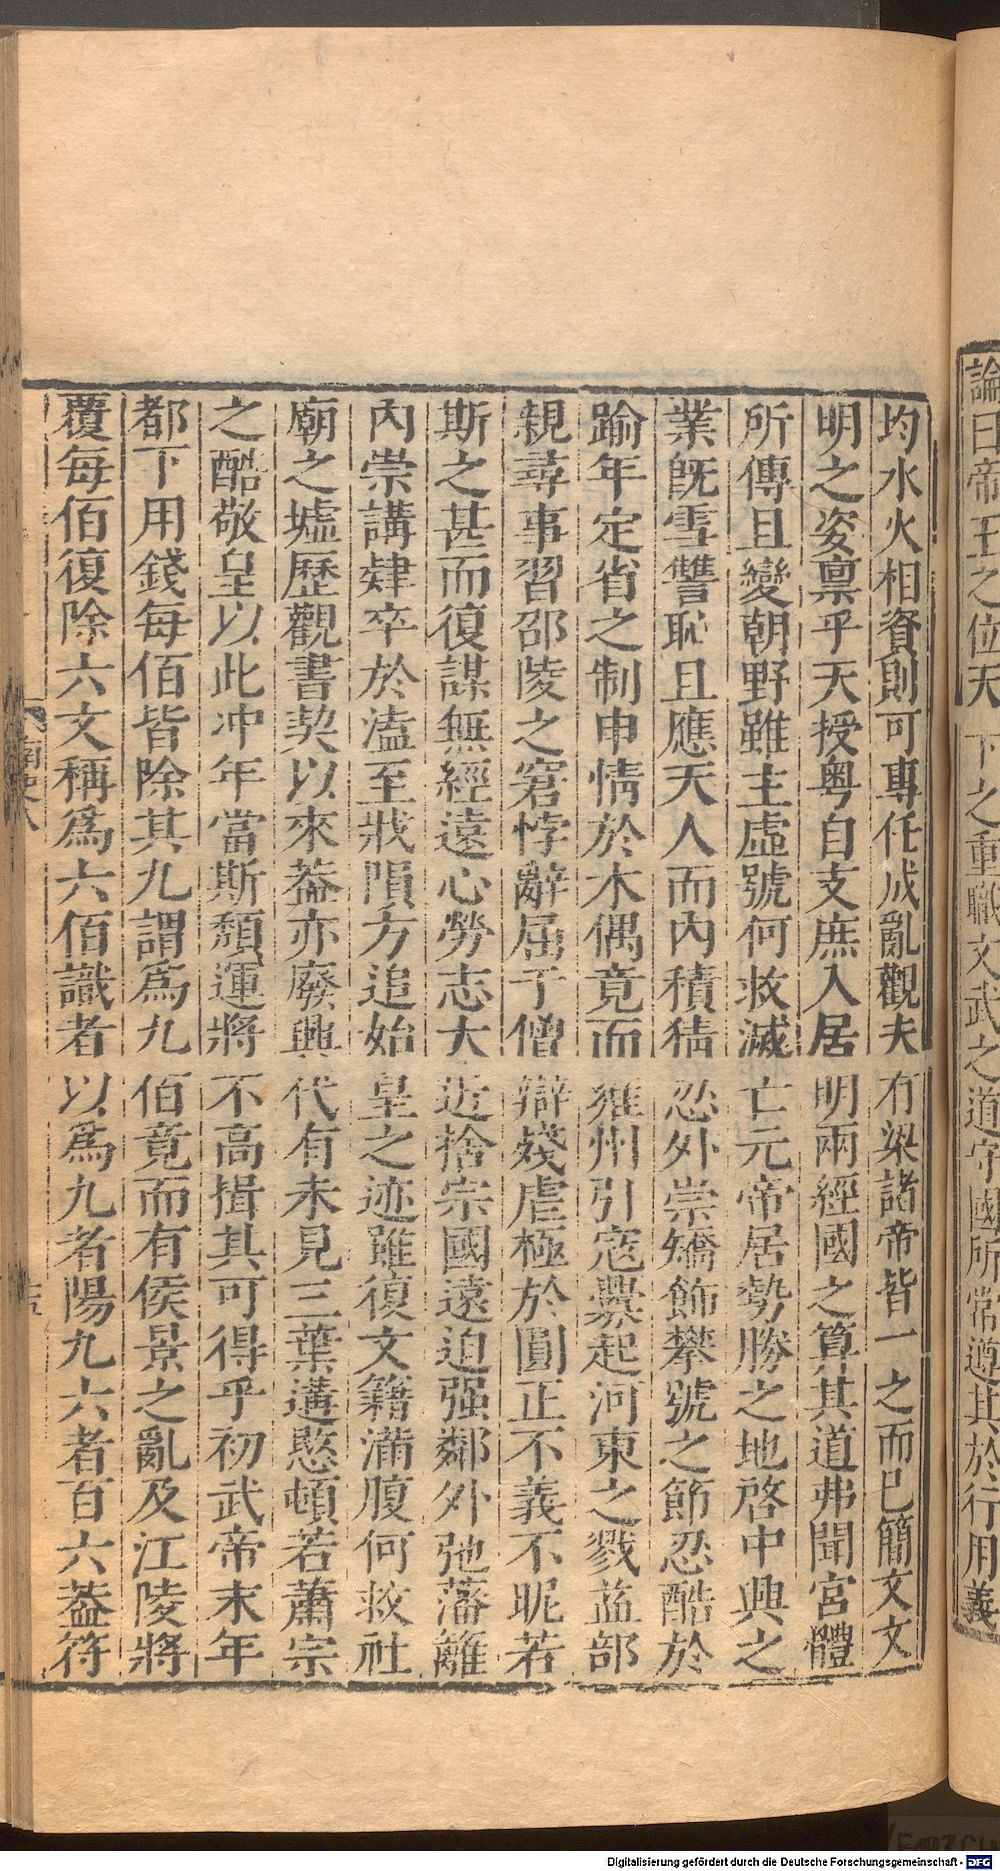 論曰帝王之位天下之重職文武之道守國所常遵其於行用義
均水火相資則可專任成亂觀夫有梁諸帝皆一之而已簡文文
明之姿禀乎天授粤自支庶入居明兩經國之算其道弗聞宮體
所傳且變朝野雖主虛號何救滅亡元帝居勢勝之地啓中興之
業旣雪讐恥且應天人而內積猜忍外崇矯飾攀號之節忍酷於
踰年定省之制申情於木偶竟而雍州引寇釁起河東之戮益部
親尋事習邵陵之窘悖辭屈于僧辯殘虐極於圓正不義不昵若
斯之甚而復謀無經遠心勞志大近捨宗國遠迫强鄰外弛藩籬
內崇講肄卒於溘至戕隕方追始皇之迹雖復文籍滿腹何救社
廟之墟歷觀書契以來蓋亦廢興代有未見三葉遘愍頓若蕭宗
之酷敬皇以此冲年當斯頹運將不高揖其可得乎初武帝末年
都下用錢每佰皆除其九謂爲九佰竟而有侯景之亂及江陵將
覆每佰復除六文稱爲六佰識者以爲九者陽九六者百六蓋符
南史八
Digitalisierung gefördert durch die Deutsche Forschungsgemeinschaft - DFG